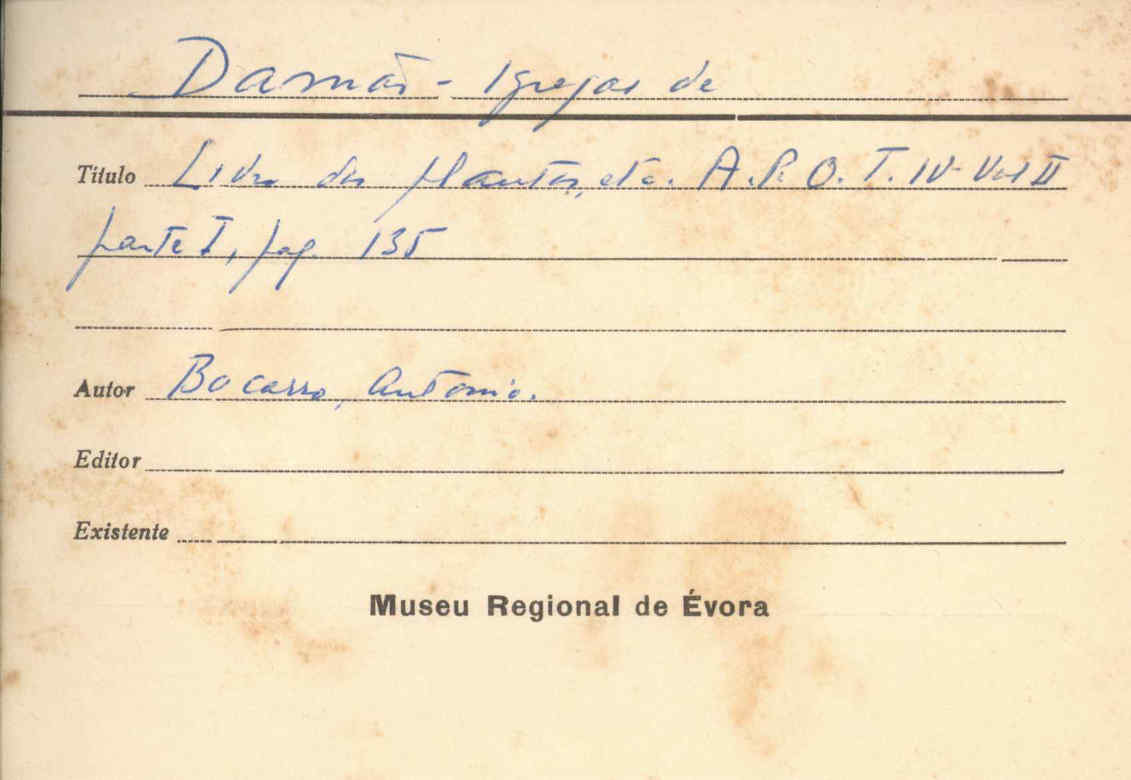 Damão - Igrejas de
Título Livro das Plantas, etc. A.P.O. T. IV - Vol II
parte I, pag. 135
Autor Bocarro, Antonio.
Editor
Existente
Museu Regional de Évora